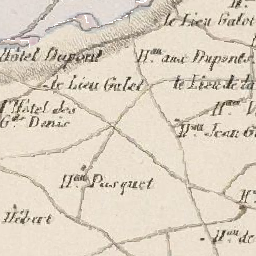 le Lieu Galot
Hôtel Dupont
H.au aux Duponts
le Lieu Galet
le Lieu de la
l'Hôtel des
G.ds Denis
H.au
H.au Jean G
H.au Pasquet
Hébert
H.au de